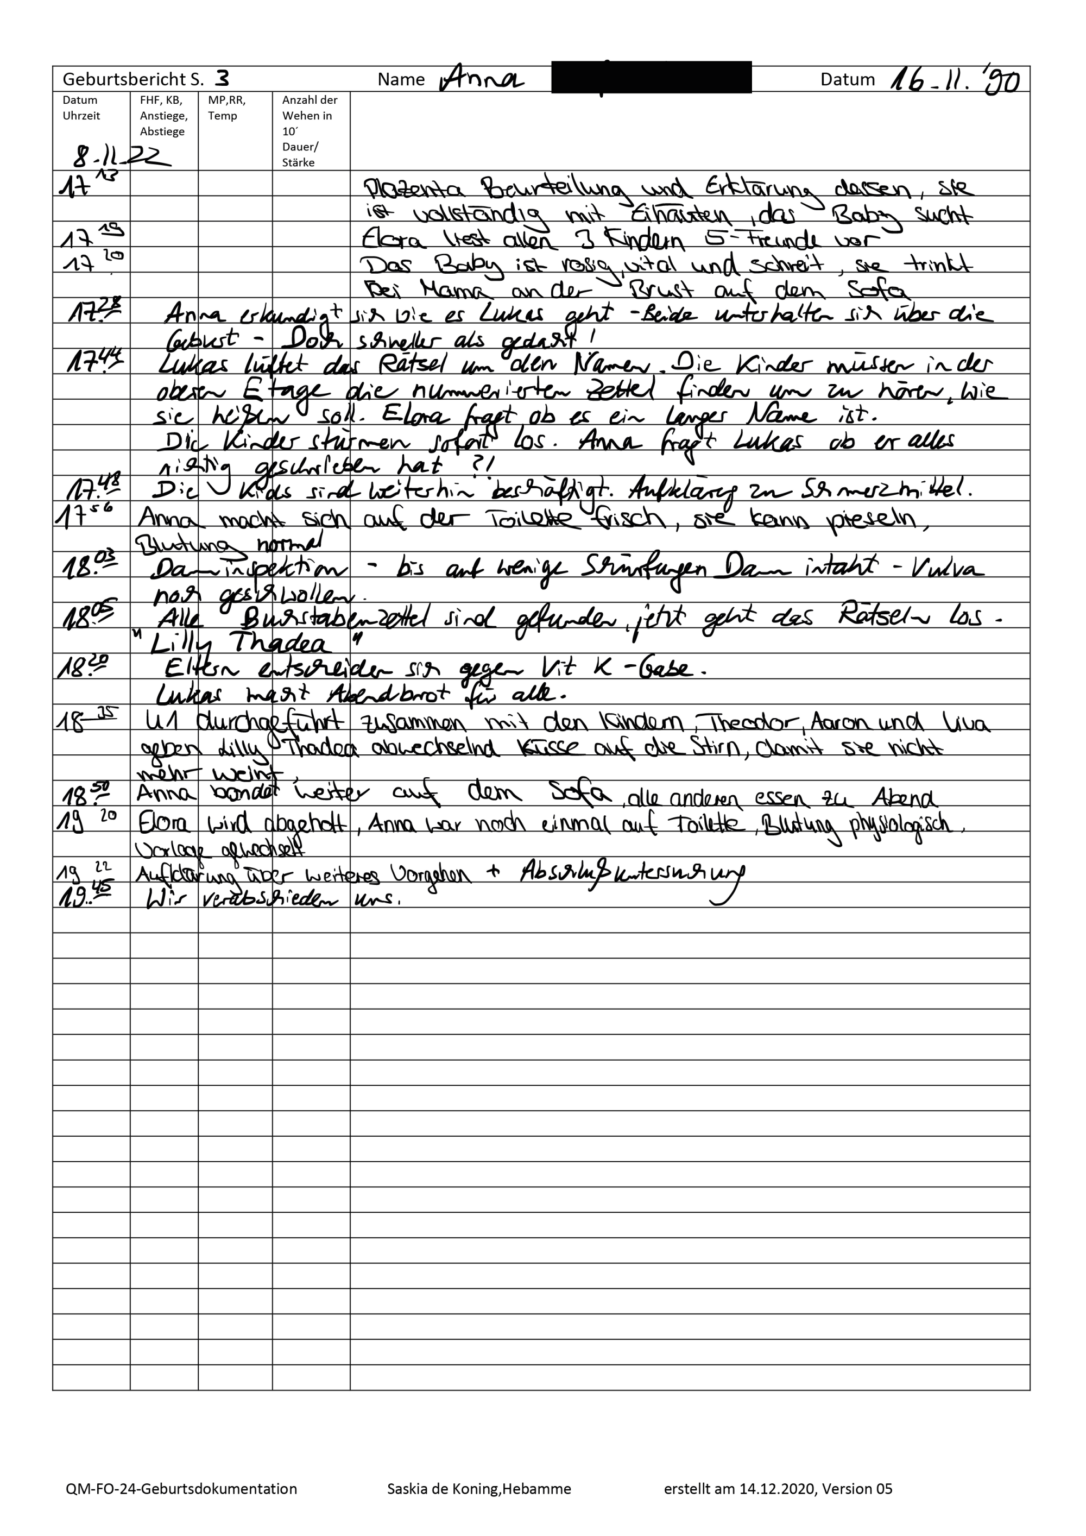 Geburtsbericht S. 3 Name Anna Datum 16.11.'90
Datum Uhrzeit FHF, KB, Anstiege, Abstiege MP,RR, Temp Anzahl der Wehen in 10´ Dauer/ Stärke
8.11.22
17 13 Plazenta Beurteilung und Erklärung dessen, sie
ist vollständig mit Eihäuten, das Baby sucht
17 19 Elora liest allen 3 Kindern 5-Freunde vor
17 20 Das Baby ist rosig, vital und schreit, sie trinkt
Bei Mama an der Brust auf dem Sofa
17.28 Anna erkundigt sich wie es Lukas geht - Beide unterhalten sich über die
Geburt - Doch schneller als gedacht!
17.44 Lukas lüftet das Rätsel um den Namen. Die Kinder müssen in der
oberen Etage die nummerierten Zettel finden um zu hören, wie
sie heißen soll. Elora fragt ob es ein langer Name ist.
Die Kinder stürmen sofort los. Anna fragt Lukas ob er alles
richtig geschrieben hat ?!
17.48 Die Kids sind weiterhin beschäftigt. Aufklärg zu Schmerzmittel.
17 56 Anna macht sich auf der Toilette frisch, sie kann pieseln,
Blutung normal
18.03 Damminspektion - bis auf wenige Schürfungen Damm intakt - Vulva
noch geschwollen.
18.05 Alle Buchstabenzettel sind gefunden, jetzt geht das Rätseln los.
"Lilly Thadea"
18.20 Eltern entscheiden sich gegen Vit K - Gabe.
Lukas macht Abendbrot für alle.
18 35 U1 durchgeführt zusammen mit den Kindern, Theodor, Aaron und Liva
geben Lilly Thadea abwechselnd Küsse auf die Stirn, damit sie nicht
mehr weint.
18 50 Anna bondet weiter auf dem Sofa, alle anderen essen zu Abend
19 20 Elora wird abgeholt, Anna war noch einmal auf Toilette, Blutung physiologisch,
Vorlage gewechselt
19 22 Aufklärung über weiteres Vorgehen + Abschlußuntersuchung
19.45 Wir verabschieden uns.
QM-FO-24-Geburtsdokumentation Saskia de Koning,Hebamme erstellt am 14.12.2020, Version 05